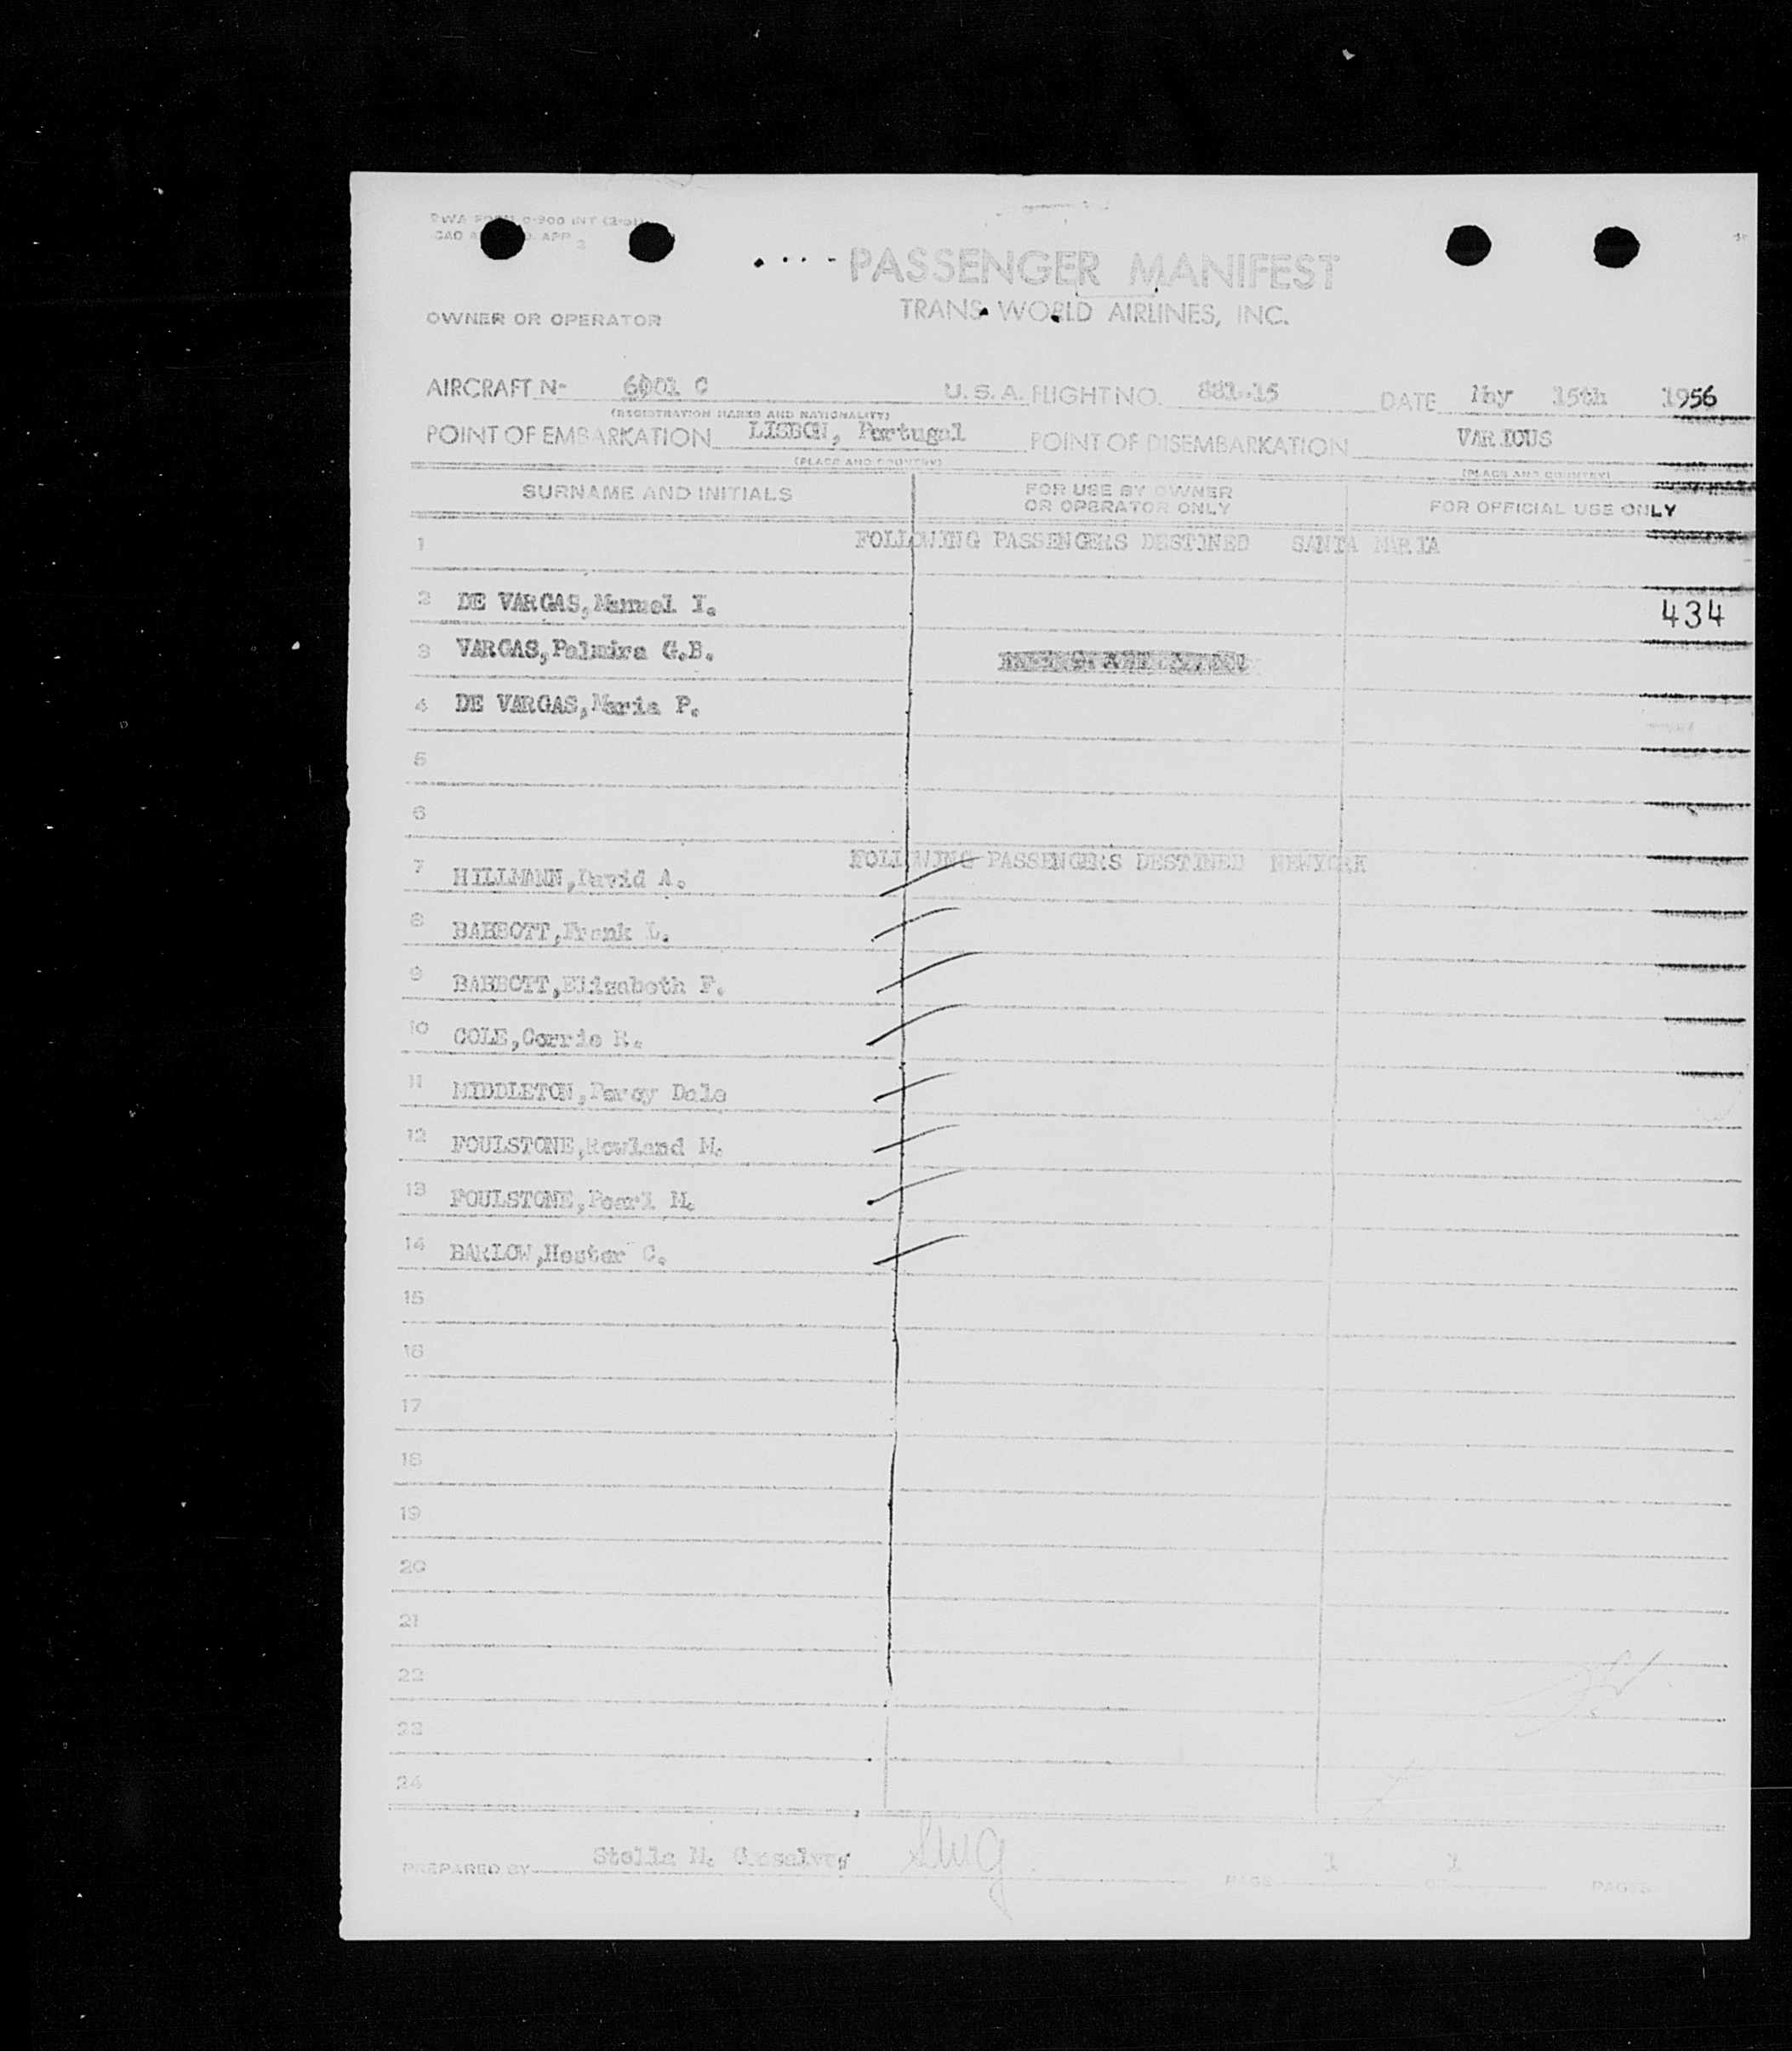 TWA FORM 0-900 INT
CAO APP
PASSENGER MANIFEST
TRANS WORLD AIRLINES, INC.
OWNER OR OPERATOR
AIRCRAFT N- 6001 C U. S. A. FLIGHT NO. 881-15 DATE May 15th 1956
(REGISTRATION MARKS AND NATIONALITY)
POINT OF EMBARKATION LISBON, Portugal POINT OF DISEMBARKATION VARIOUS
(PLACE AND COUNTRY) (PLACE AND COUNTRY)
SURNAME AND INITIALS FOR USE BY OWNER OR OPERATOR ONLY FOR OFFICIAL USE ONLY
1 FOLLOWING PASSENGERS DESTINED SANTA MARIA
2 DE VARGAS,Manuel I. 434
3 VARGAS,Palmira G.B.
4 DE VARGAS,Maria P.
5
6
FOLLOWING PASSENGERS DESTINED NEWYORK
7 HILLMANN,David A.
8 BABBOTT,Frank L.
9 BABBOTT,Elizabeth F.
10 COLE,Corrie R.
11 MIDDLETON,Percy Dale
12 FOULSTONE,Rowland M.
13 FOULSTONE,Pearl M.
14 BARLOW,Hester C.
15
16
17
18
19
20
21
22
23
24
PREPARED BY Stella M. Gonsalves SMG PAGE 1 OF 1 PAGES